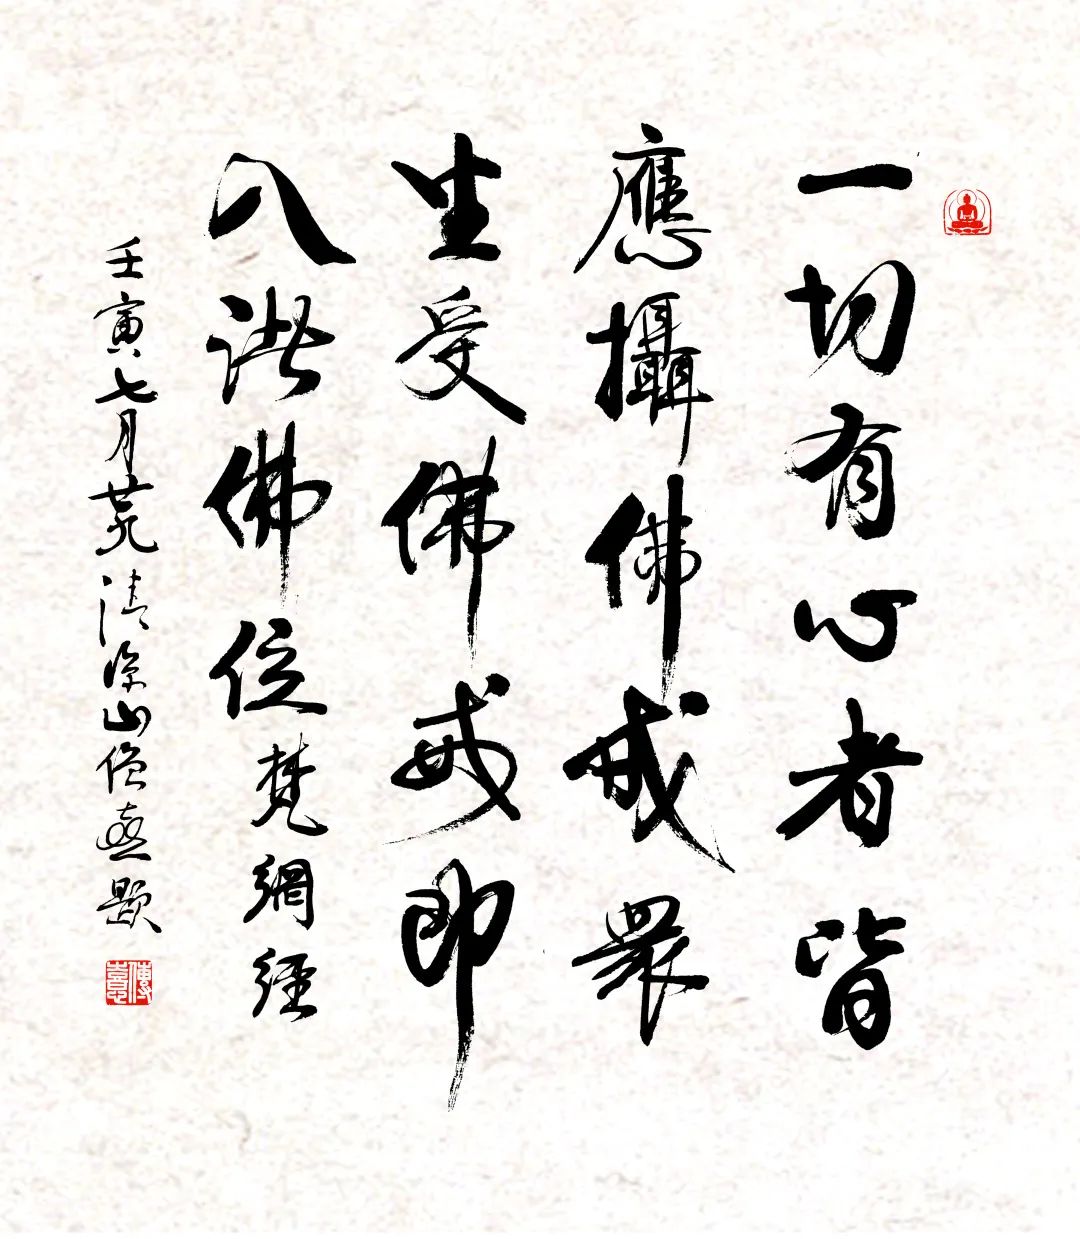 一切有心者皆
應攝佛戒眾
生受佛戒即
入諸佛位梵網經
壬寅七月荒清涼山僧題